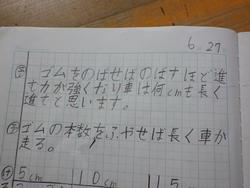 6.27
予 ゴムをのばせばのばすほど進
む力が強くなり車は何cmも長く
進でと思います。
予 ゴムの本数をふやせば長く車が
走る。
5cm 110cm 15